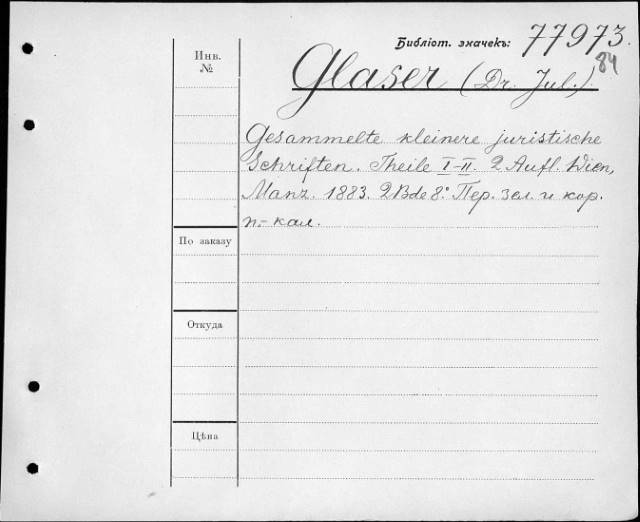 Библіот. значекъ: 77973.
84
Инв. №
Glaser (Dr. Jul.)
Gesammelte kleinere juristische
Schriften. Theile I-II. 2 Aufl. Wien,
Manz. 1883. 2 Bde 8º. Пер. зел. и кор.
п.-кал.
По заказу
Откуда
Цѣна